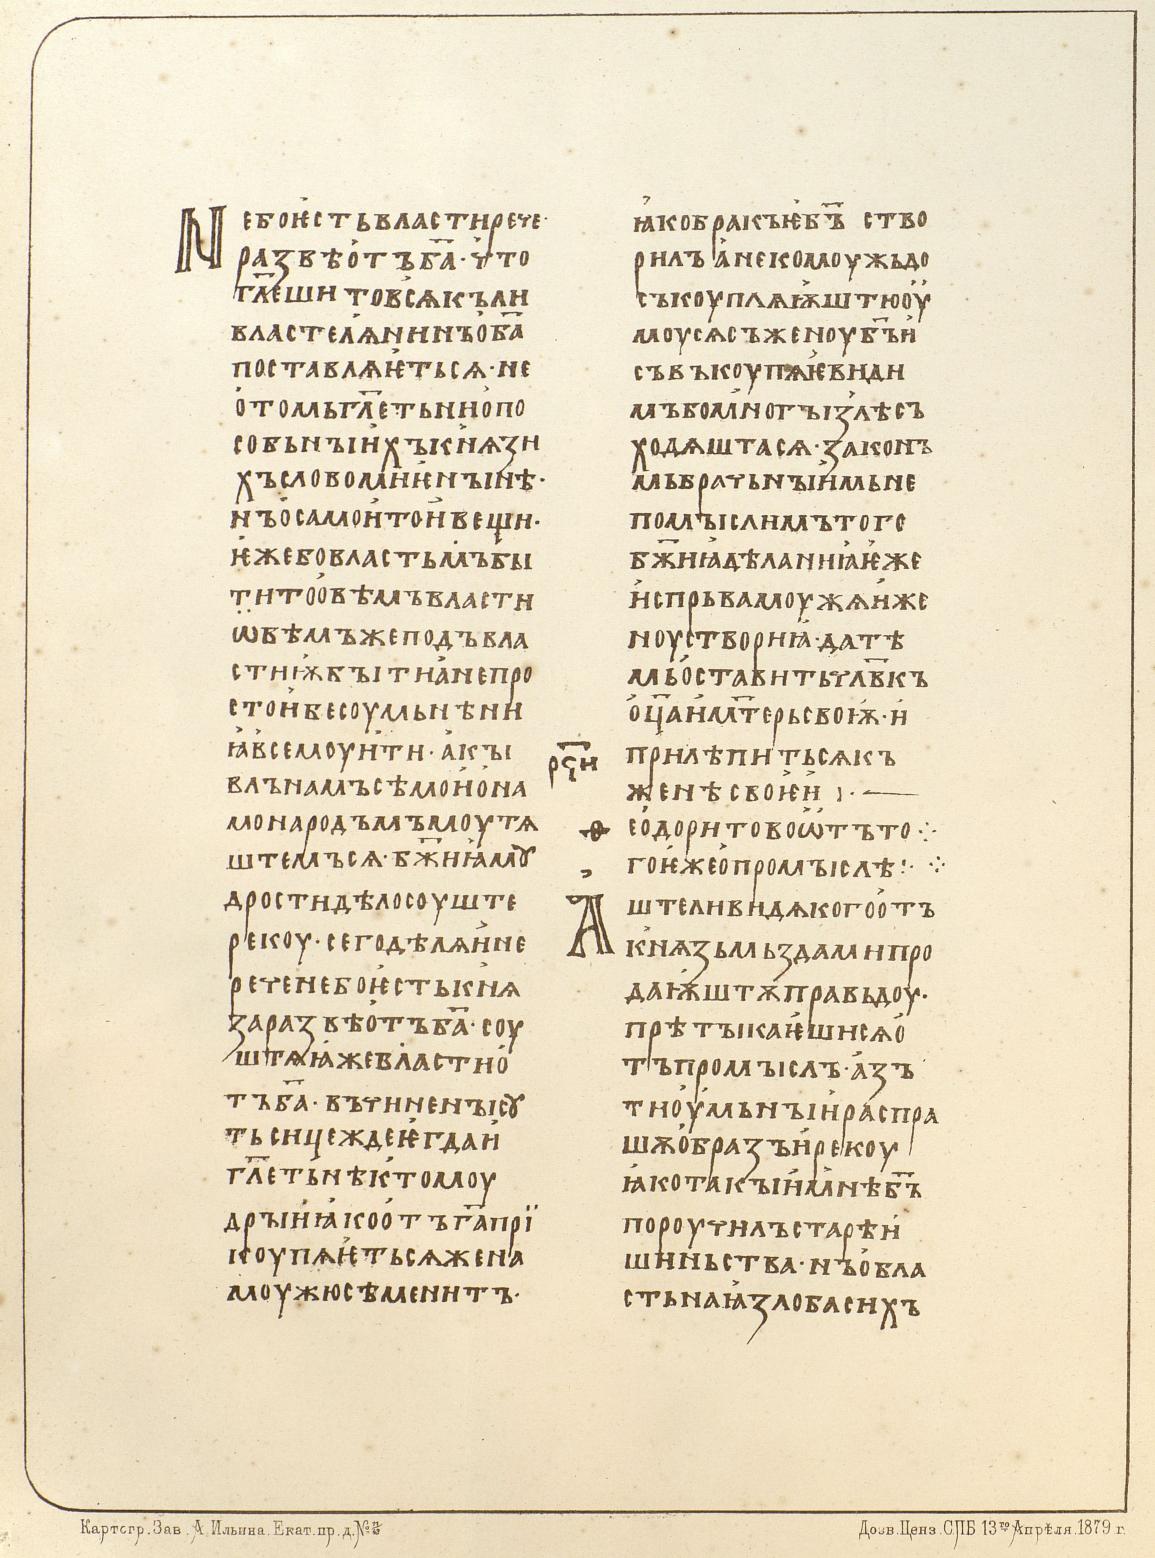 Не боѥсть власти рече·
развѣ отъ б҃а· что
гл҃еши то всѧкъ ли
властелѧнинъ о б҃а
поставлѧѥтьсѧ· не
о томь гл҃еть ни о по
собьныихъ кнѧзи
хъ слово мни нынѣ·
нъ о самои тои вещи·
ѥже бо властьмъ бы
ти то овѣмъ власти
ѡвѣмъ же подъ вла
стиѭ быти а не про
сто и бесоумьнѣни
ꙗ всемоу ити· акы
влънамъ сѣмо и она
мо народъмъ моутѧ
штемъсѧ· б҃жиꙗ мꙋ
дрости дѣло соуште
рекоу· сего дѣлѧ и не
рече не боѥсть кнѧ
за развѣ отъ б҃а· соу
штѧꙗ же власти о
тъ б҃а· въчинены сꙋ
ть сице ж де ѥгда и
гл҃еть нѣкто моу
дрыи ꙗко отъ г҃а прї
коупѧѥтьсѧ жена
моужю сѣменитъ·
ꙗко бракъ ѥ б҃ъ ство
рилъ а не комоужьдо
съкоуплѧѭштюоу
моусѧ съ женоу б҃ъ и
съвъкоупѧѥ види
мъ бо многы ꙁлѣ съ
ходѧштасѧ· ꙁаконъ
мь брачьныимь не
помыслимъ того
б҃жиꙗ дѣланиꙗ ѥже
испрьва моужѧ и же
ноу створиꙗ· да тѣ
мь оставить чл҃вкъ
оц҃а и мт҃ерь своѭ· и
прилѣпитьсѧ къ
женѣ своѥи
рс҃и
Ѳеодоритово ѡтъ то
го ѥже о промыслѣ:·
Аште ли видѧ кого отъ
кнѧзь мьздами про
даѭштѫ правьдоу·
прѣтыкаѥшисѧ о
тъ промыслъ· аꙁъ
ти оумьныи распра
шѫ образъ и рекоу
ꙗко такыи мнѣ б҃ъ
пороучилъ старѣи
шиньства· нъ обла
сть наꙗ ꙁлоба сихъ
Картогр. Зав. А. Ильина. Екат. пр. д. №
Дозв. Ценз. СПБ 13го Апрѣля. 1879 г.